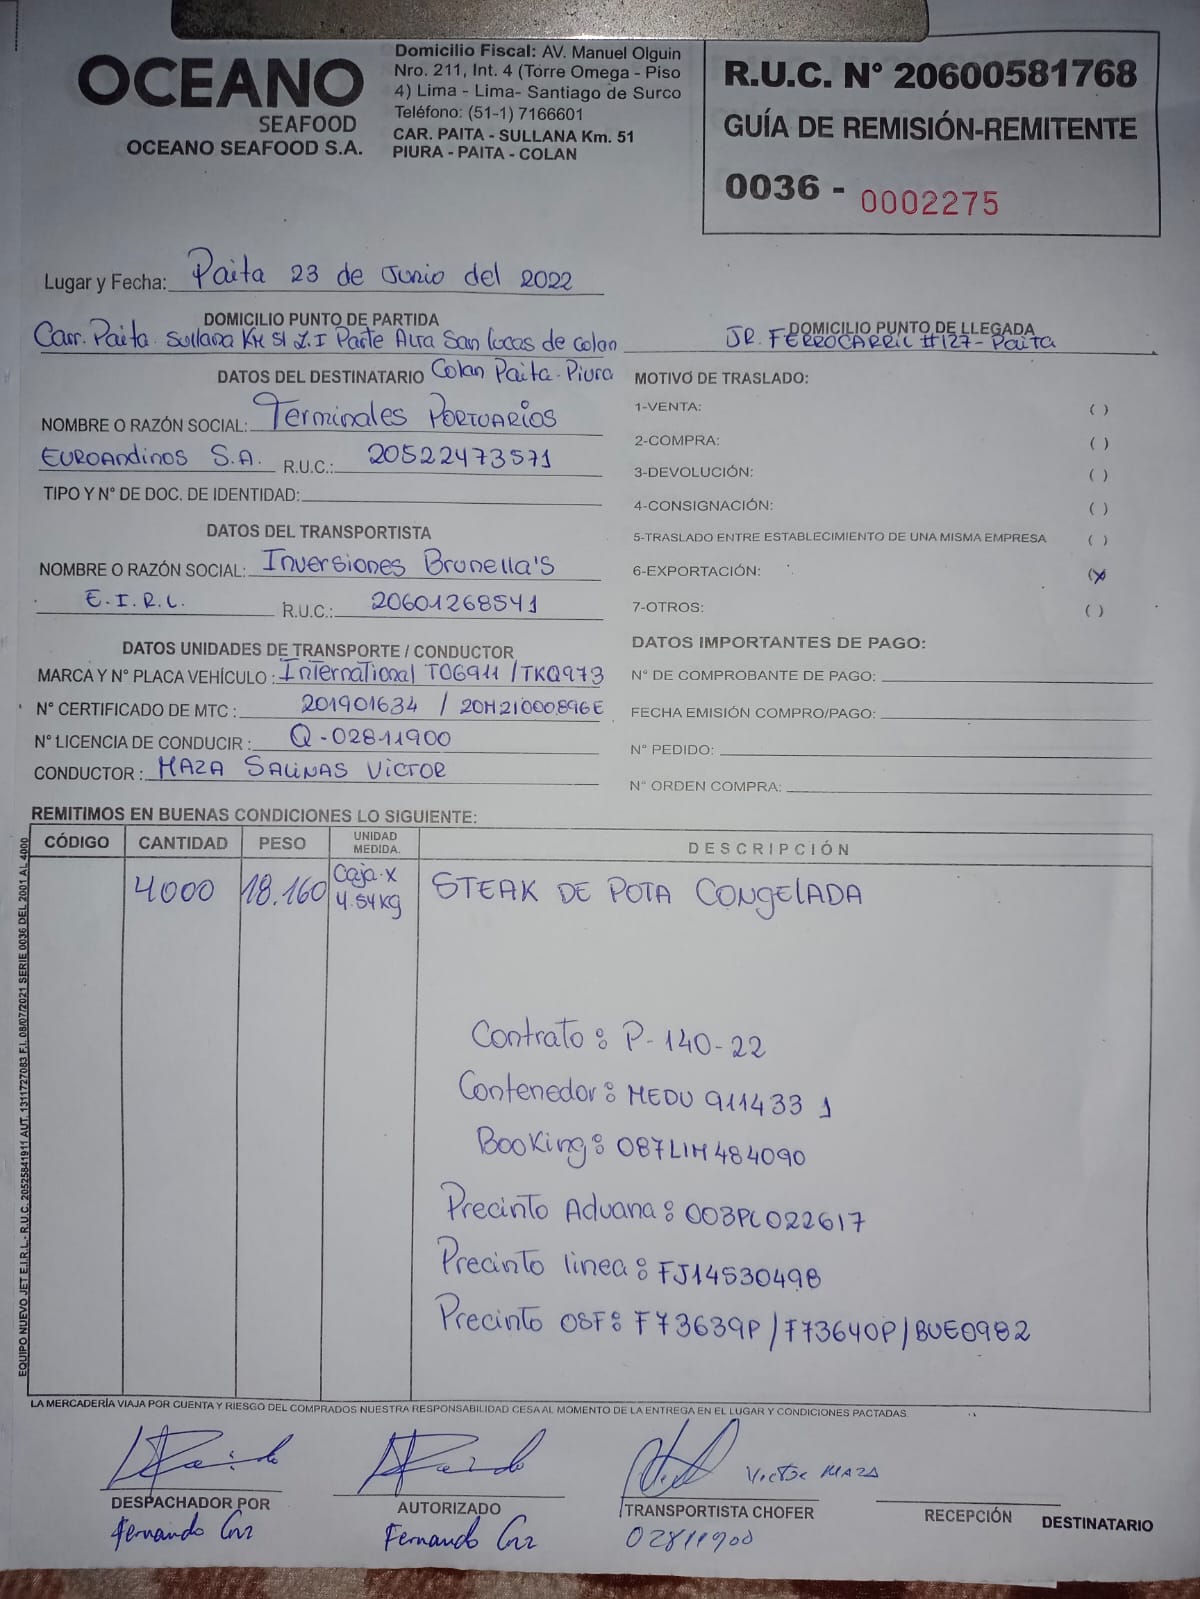 OCEANO
SEAFOOD
OCEANO SEAFOOD S.A.
Domicilio Fiscal: AV. Manuel Olguin
Nro. 211, Int. 4 (Torre Omega - Piso
4) Lima - Lima- Santiago de Surco
Teléfono: (51-1) 7166601
CAR. PAITA - SULLANA Km. 51
PIURA - PAITA - COLAN
R.U.C. N° 20600581768
GUÍA DE REMISIÓN-REMITENTE
0036 - 0002275
Lugar y Fecha: Paita 23 de Junio del 2022
DOMICILIO PUNTO DE PARTIDA
Carr. Paita Sullana KM 51 Z.I Parte Alta San Lucas de Colan
Colan Paita-Piura
DOMICILIO PUNTO DE LLEGADA
JR. FERROCARRIL #127- Paita
DATOS DEL DESTINATARIO
NOMBRE O RAZÓN SOCIAL: Terminales PORTUARIOS
EUROAndinos S.A. R.U.C.: 20522473571
TIPO Y N° DE DOC. DE IDENTIDAD:
DATOS DEL TRANSPORTISTA
NOMBRE O RAZÓN SOCIAL: Inversiones Brunella's
E.I.R.L. R.U.C.: 20601268541
DATOS UNIDADES DE TRANSPORTE / CONDUCTOR
MARCA Y N° PLACA VEHÍCULO : International T0G911 /TKQ973
N° CERTIFICADO DE MTC : 201901634 / 20M21000896E
N° LICENCIA DE CONDUCIR : Q-02811900
CONDUCTOR : MAZA SALINAS VICTOR
MOTIVO DE TRASLADO:
1-VENTA: ( )
2-COMPRA: ( )
3-DEVOLUCIÓN: ( )
4-CONSIGNACIÓN: ( )
5-TRASLADO ENTRE ESTABLECIMIENTO DE UNA MISMA EMPRESA ( )
6-EXPORTACIÓN: (X)
7-OTROS: ( )
DATOS IMPORTANTES DE PAGO:
N° DE COMPROBANTE DE PAGO:
FECHA EMISIÓN COMPRO/PAGO:
N° PEDIDO:
N° ORDEN COMPRA:
REMITIMOS EN BUENAS CONDICIONES LO SIGUIENTE:
CÓDIGO CANTIDAD PESO UNIDAD MEDIDA. DESCRIPCIÓN
4000 18.160 Caja x 4.54Kg STEAK DE POTA CONGELADA
Contrato: P-140-22
Contenedor: MEDU 911433 1
Booking: 087LIM484090
Precinto Aduana: 003PL022617
Precinto linea: FJ14530498
Precinto OSF: F73639P/F73640P/BUE0982
EQUIPO NUEVO JET E.I.R.L.- R.U.C. 20525841911 AUT. 1311727083 F.I. 08/07/2021 SERIE 0036 DEL 2001 AL 4000
LA MERCADERÍA VIAJA POR CUENTA Y RIESGO DEL COMPRADOS NUESTRA RESPONSABILIDAD CESA AL MOMENTO DE LA ENTREGA EN EL LUGAR Y CONDICIONES PACTADAS
Victor MAZA
DESPACHADOR POR
Fernando Cruz
AUTORIZADO
Fernando Cruz
TRANSPORTISTA CHOFER
02811900
RECEPCIÓN
DESTINATARIO